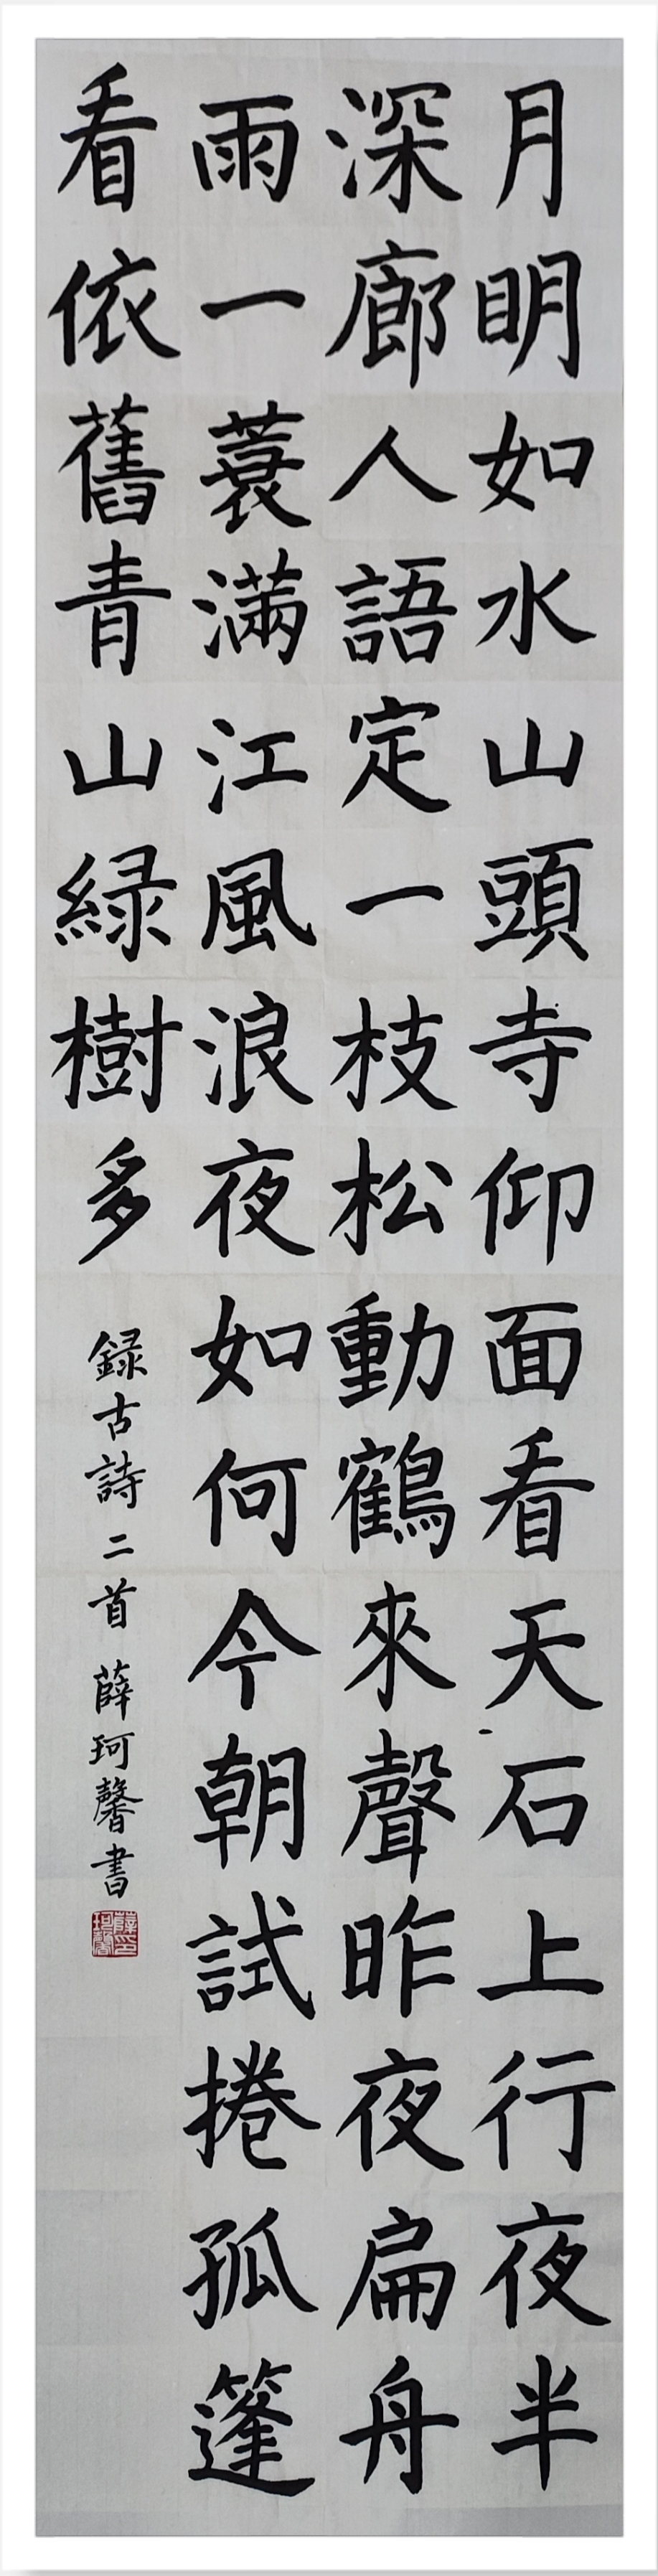 月明如水山頭寺仰面看天石上行夜半
深廊人語定一枝松動鶴來聲昨夜扁舟
雨一蓑滿江風浪夜如何今朝試捲孤篷
看依舊青山緑樹多
録古詩二首 薛珂馨書
薛印珂馨